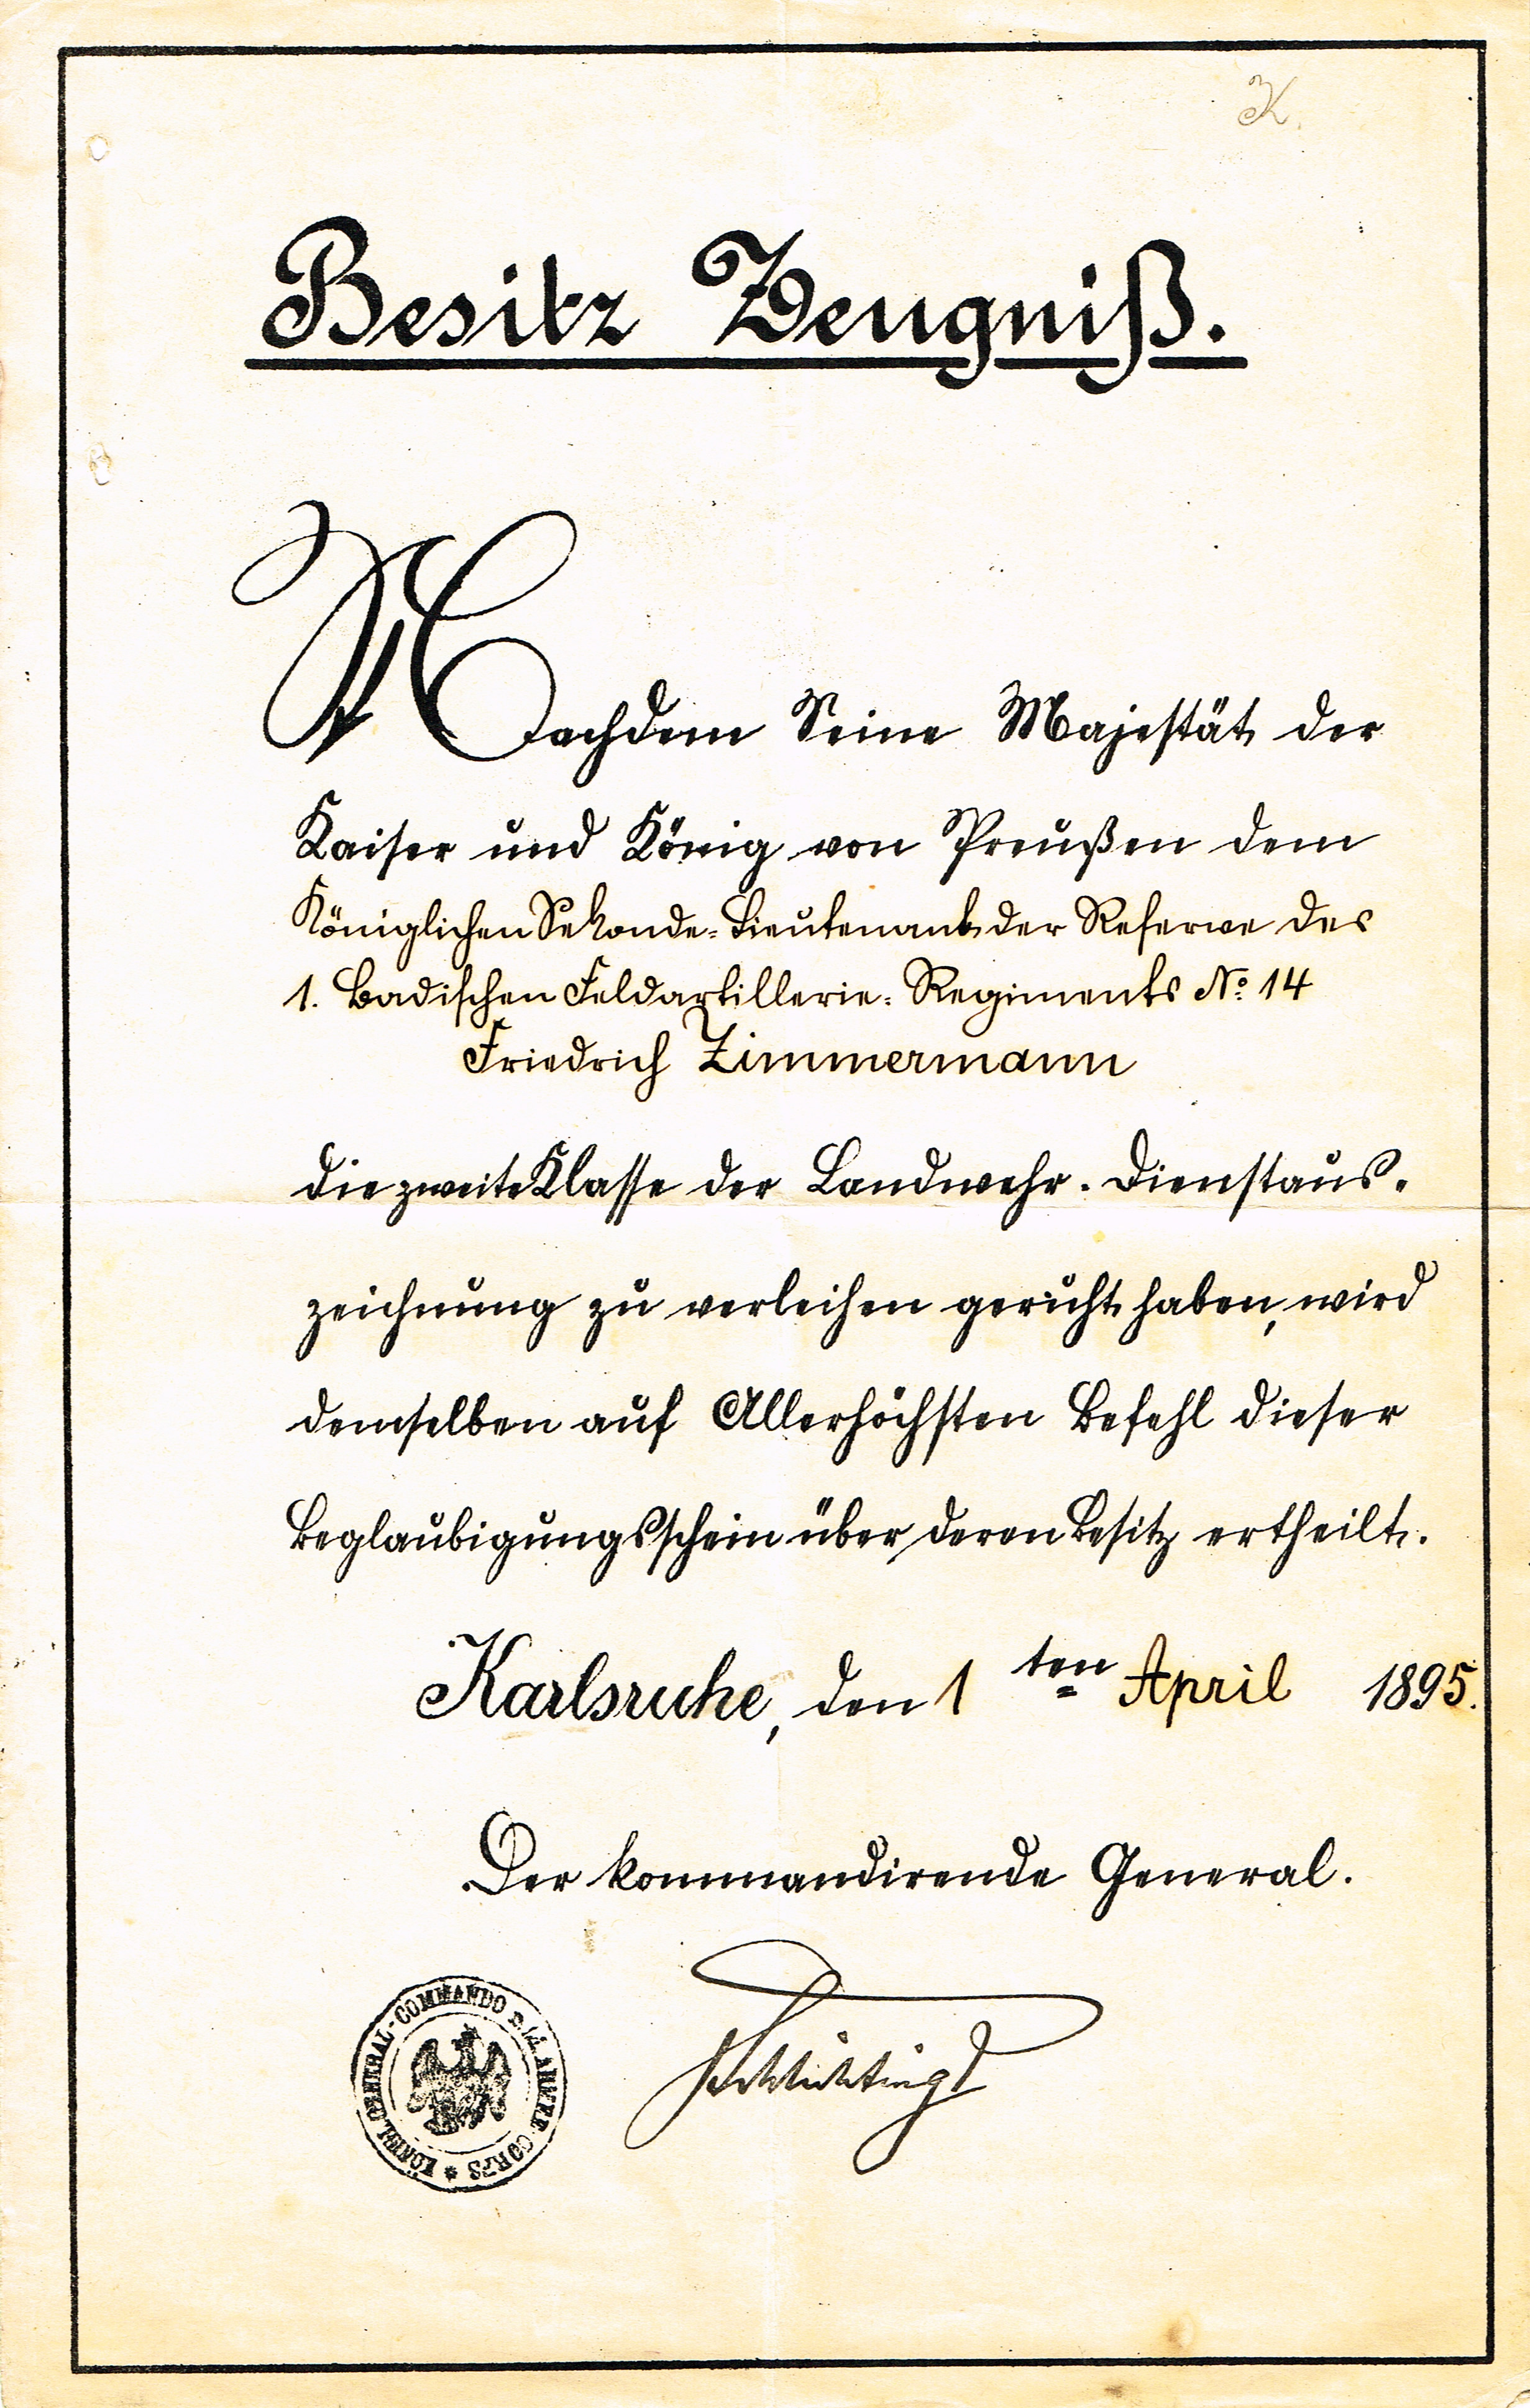 K.
Besitz Zeugniß.
Nachdem Seine Majestät der
Kaiser und König von Preußen dem
Königlichen Sekonde-Lieutenant der Reserve des
1. Badischen Feldartillerie-Regiments No. 14
Friedrich Zimmermann
die zweite Klasse der Landwehr-Dienstaus-
zeichnung zu verleihen geruht haben, wird
demselben auf Allerhöchsten Befehl dieser
Beglaubigungsschein über deren Besitz ertheilt.
Karlsruhe, den 1ten April 1895.
Der kommandirende General.
Schlichting
KÖNIGL. GENERAL-COMMANDO D. 14. ARMEE-CORPS *